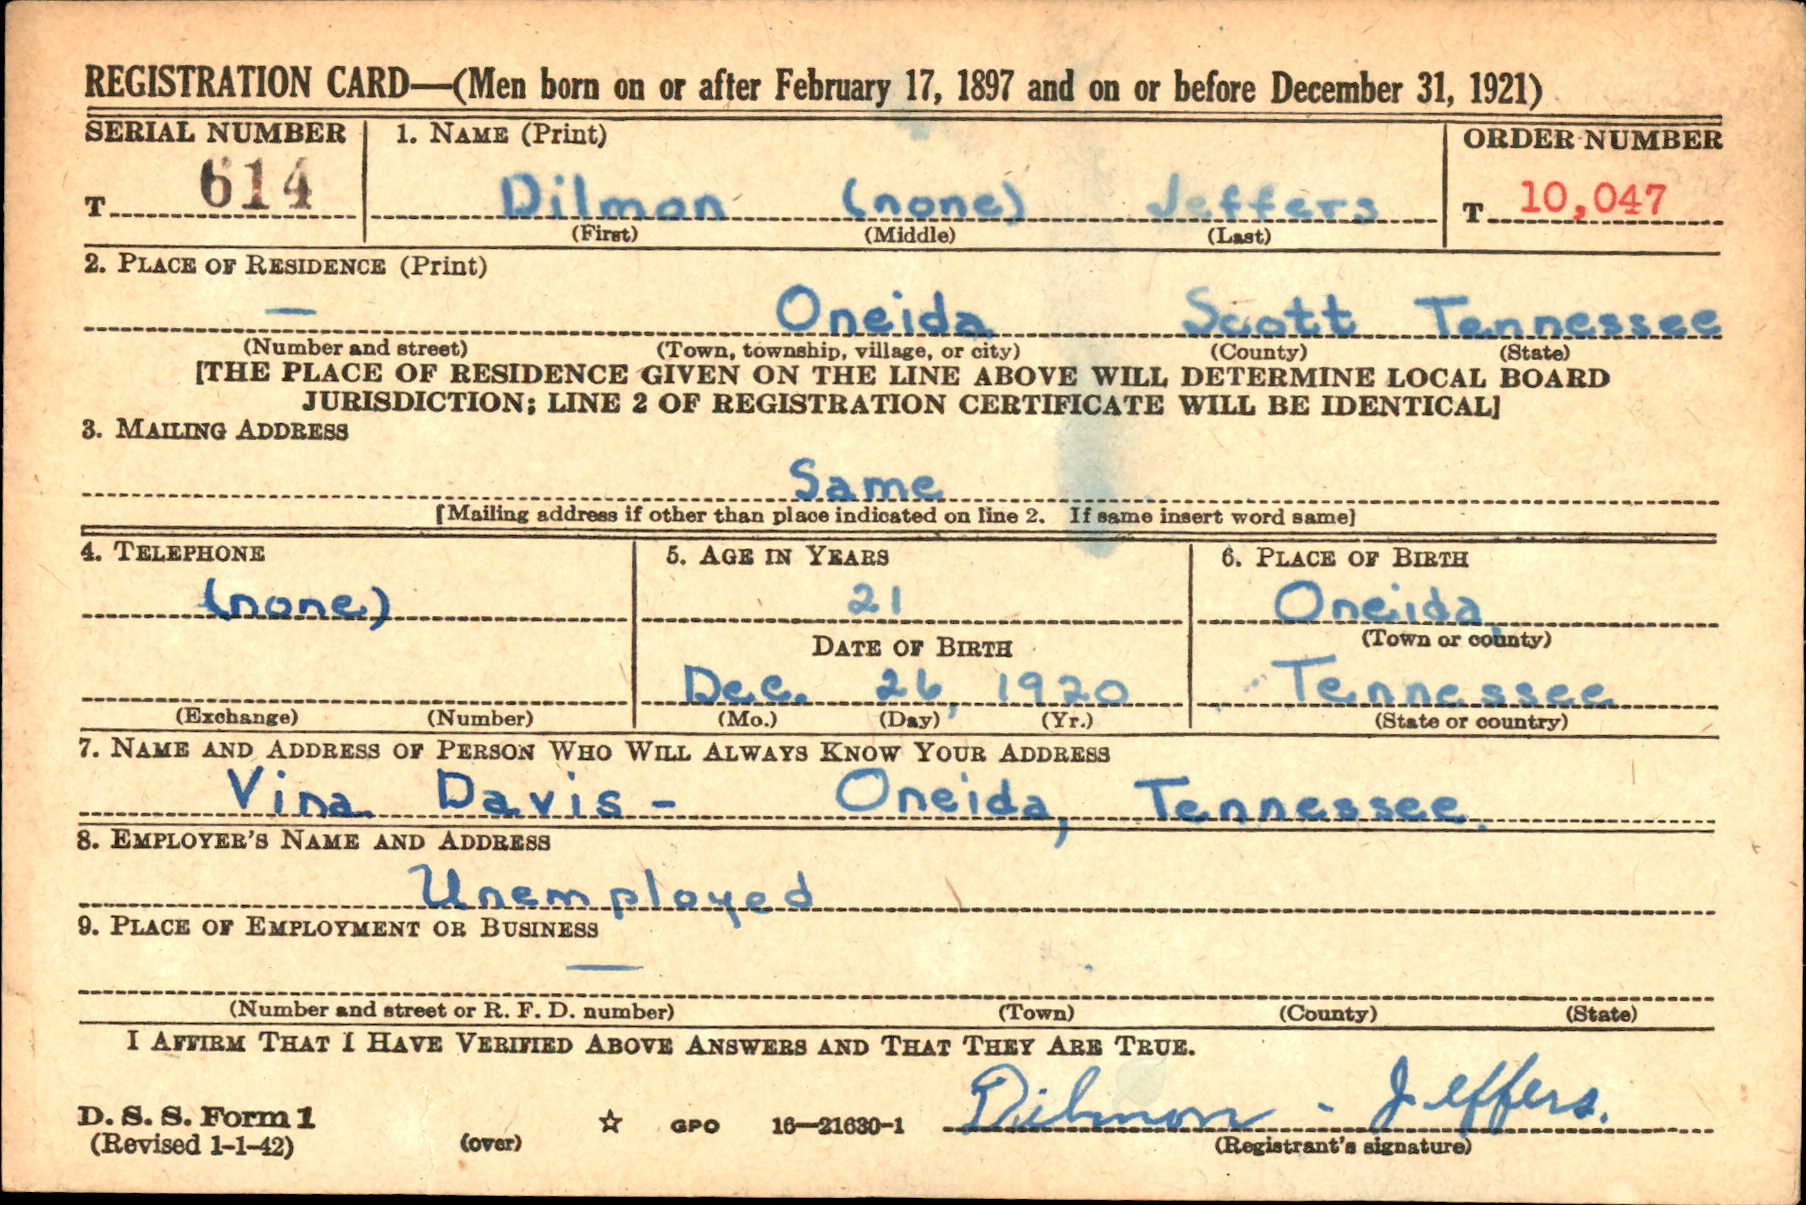 REGISTRATION CARD—(Men born on or after February 17, 1897 and on or before December 31, 1921)
SERIAL NUMBER 1. NAME (Print) ORDER NUMBER
T 614 Dilmon (none) Jeffers T 10,047
(First) (Middle) (Last)
2. PLACE OF RESIDENCE (Print)
— Oneida Scott Tennessee
(Number and street) (Town, township, village, or city) (County) (State)
[THE PLACE OF RESIDENCE GIVEN ON THE LINE ABOVE WILL DETERMINE LOCAL BOARD
JURISDICTION; LINE 2 OF REGISTRATION CERTIFICATE WILL BE IDENTICAL]
3. MAILING ADDRESS
Same
[Mailing address if other than place indicated on line 2. If same insert word same]
4. TELEPHONE 5. AGE IN YEARS 6. PLACE OF BIRTH
(none) 21 Oneida,
DATE OF BIRTH (Town or county)
Dec. 26, 1920 Tennessee
(Exchange) (Number) (Mo.) (Day) (Yr.) (State or country)
7. NAME AND ADDRESS OF PERSON WHO WILL ALWAYS KNOW YOUR ADDRESS
Vina Davis - Oneida, Tennessee.
8. EMPLOYER'S NAME AND ADDRESS
Unemployed
9. PLACE OF EMPLOYMENT OR BUSINESS
—
(Number and street or R. F. D. number) (Town) (County) (State)
I AFFIRM THAT I HAVE VERIFIED ABOVE ANSWERS AND THAT THEY ARE TRUE.
D. S. S. Form 1 ☆ GPO 16—21630-1 Dilmon - Jeffers.
(Revised 1-1-42) (over) (Registrant's signature)